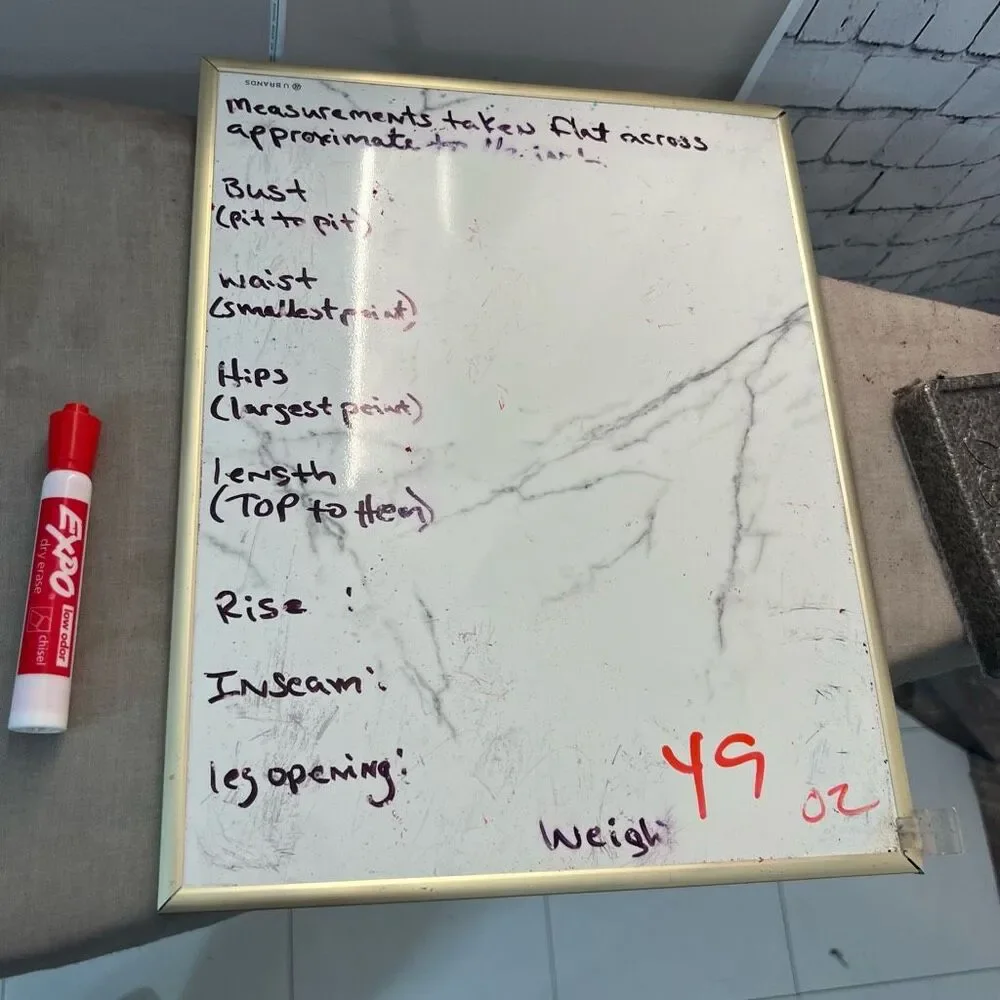 U BRANDS
Measurements taken flat across
approximate
Bust :
(pit to pit)
waist
(smallest point)
Hips
(largest point)
length
(TOP to Hem)
Rise :
Inseam :
leg opening :
49
oz
Weigh
EXPO
low odor
dry erase
chisel